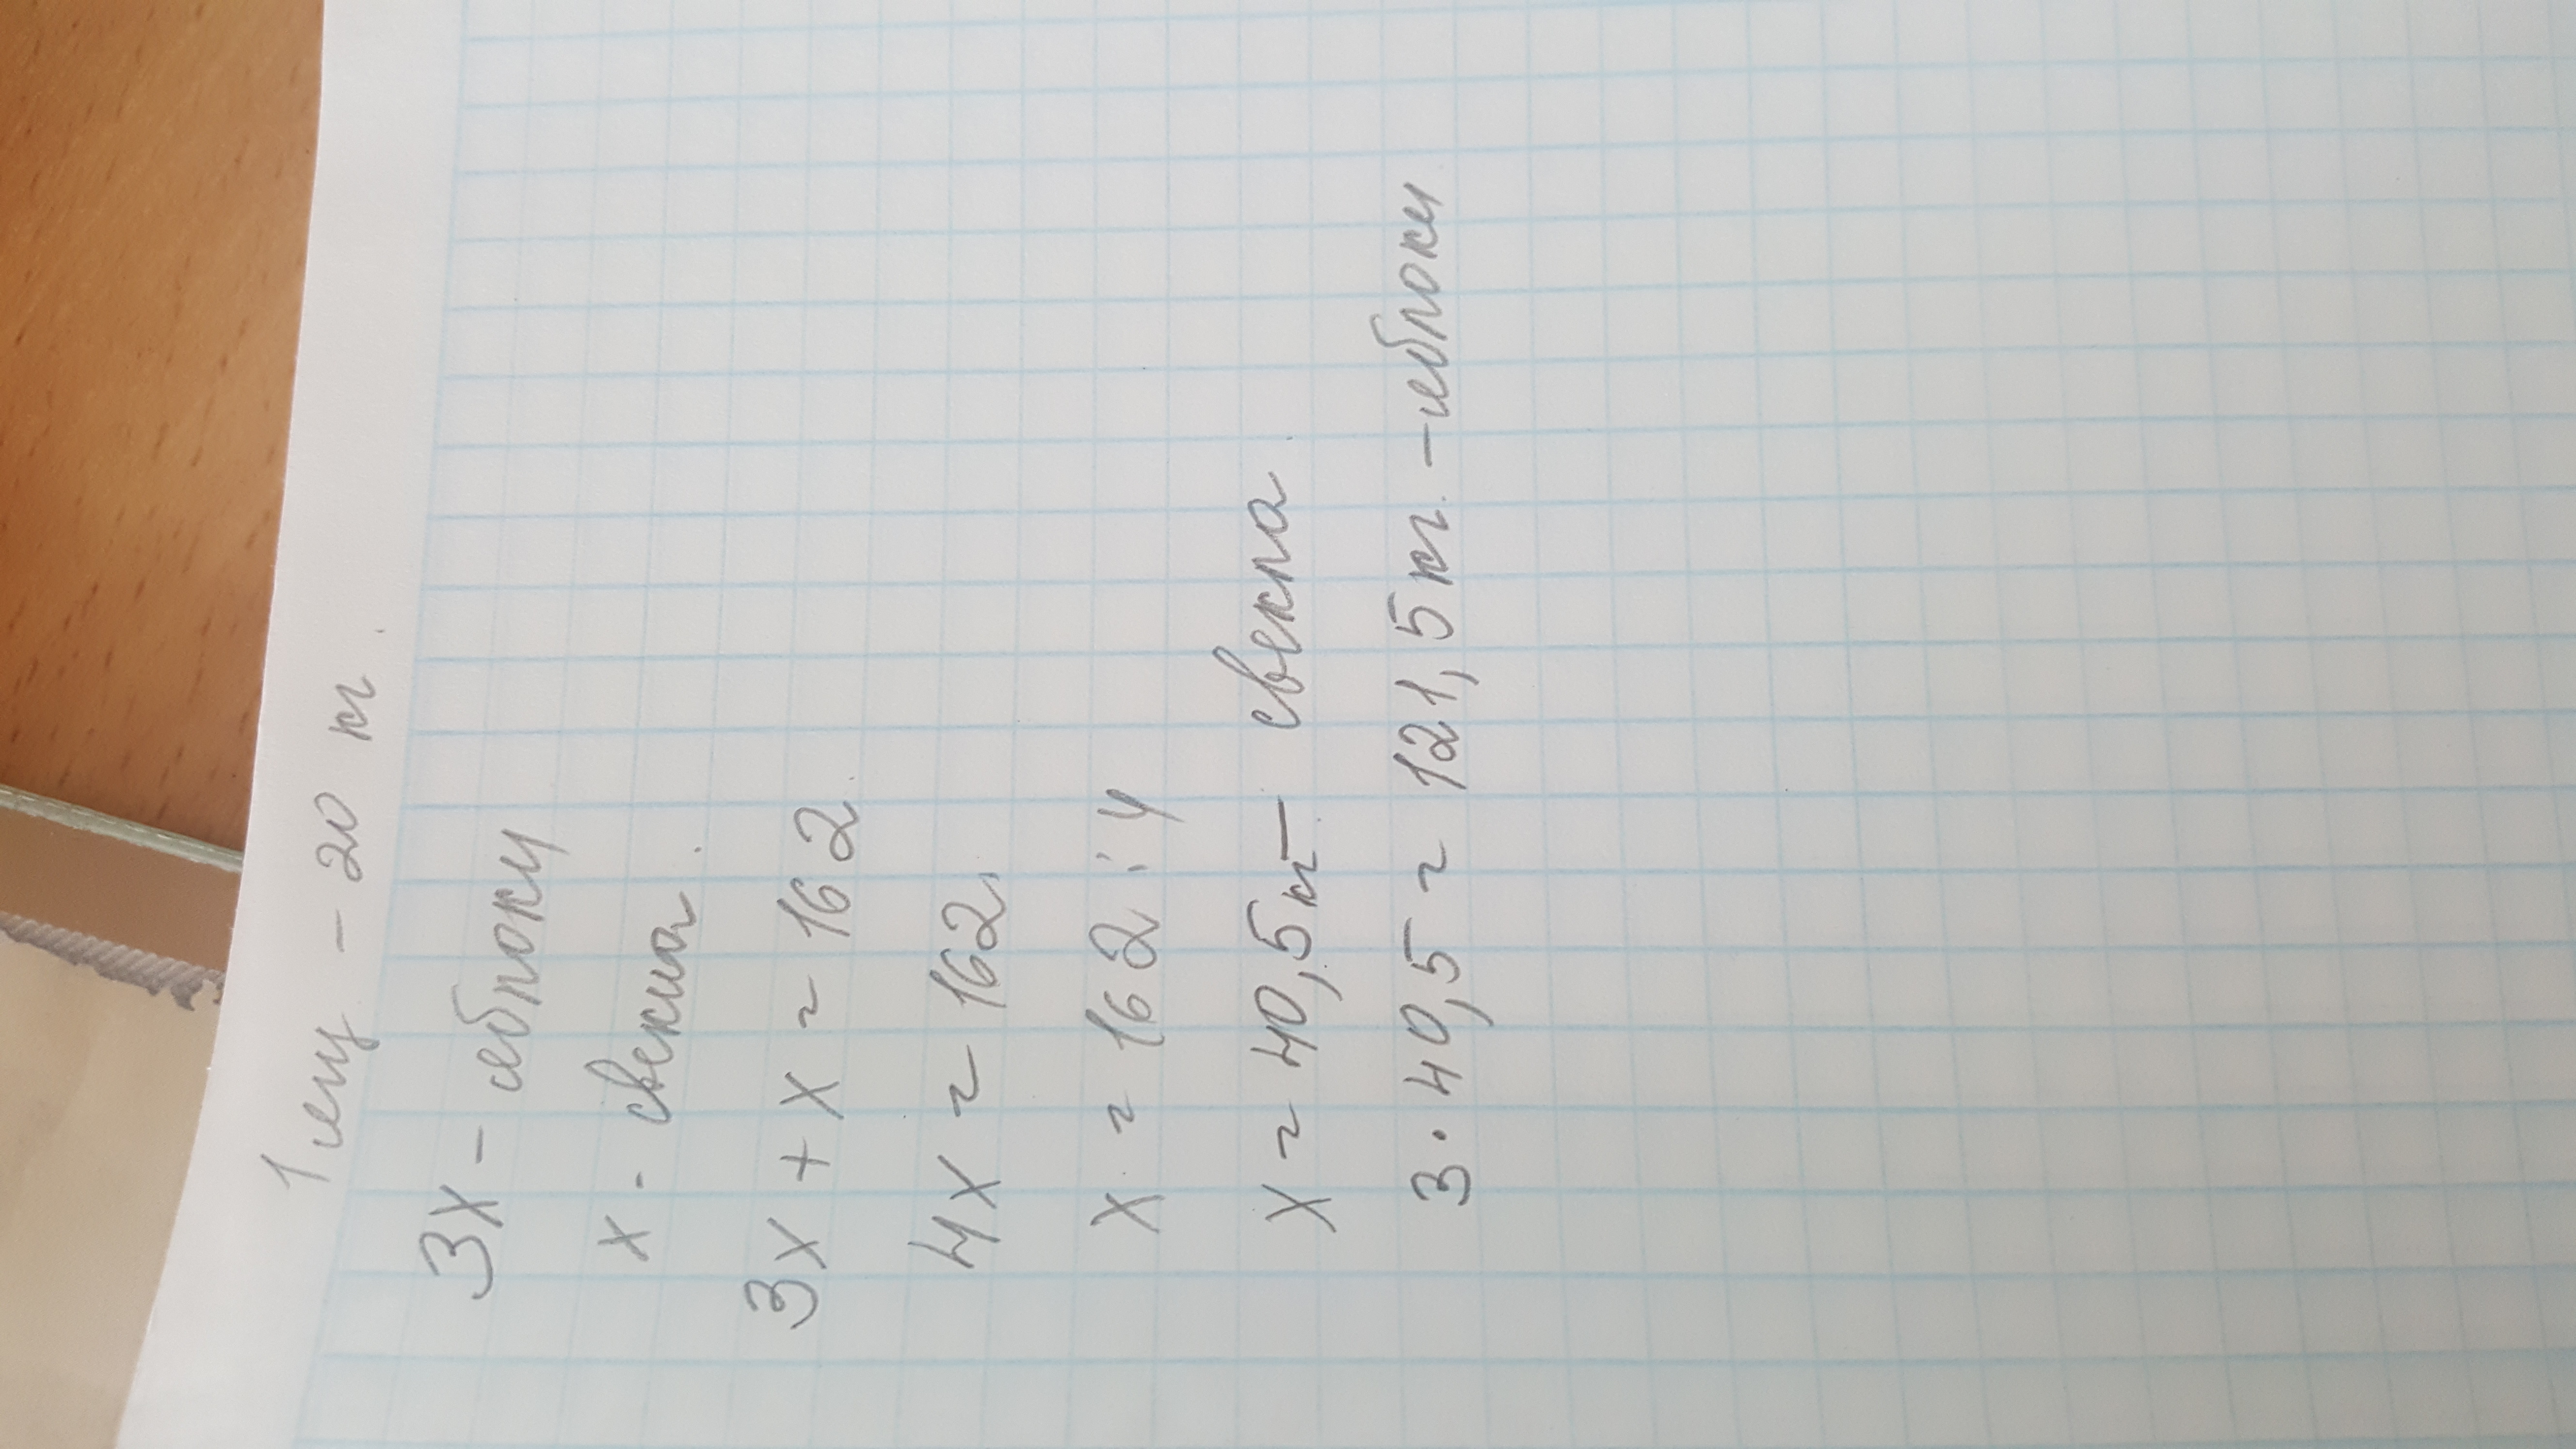 1 ящ - 20 кг.
3х - яблоки
х - свекла.
3х + х = 162
4х = 162
х = 162 : 4
х = 40,5 кг - свекла
3 · 40,5 = 121,5 кг. - яблоки